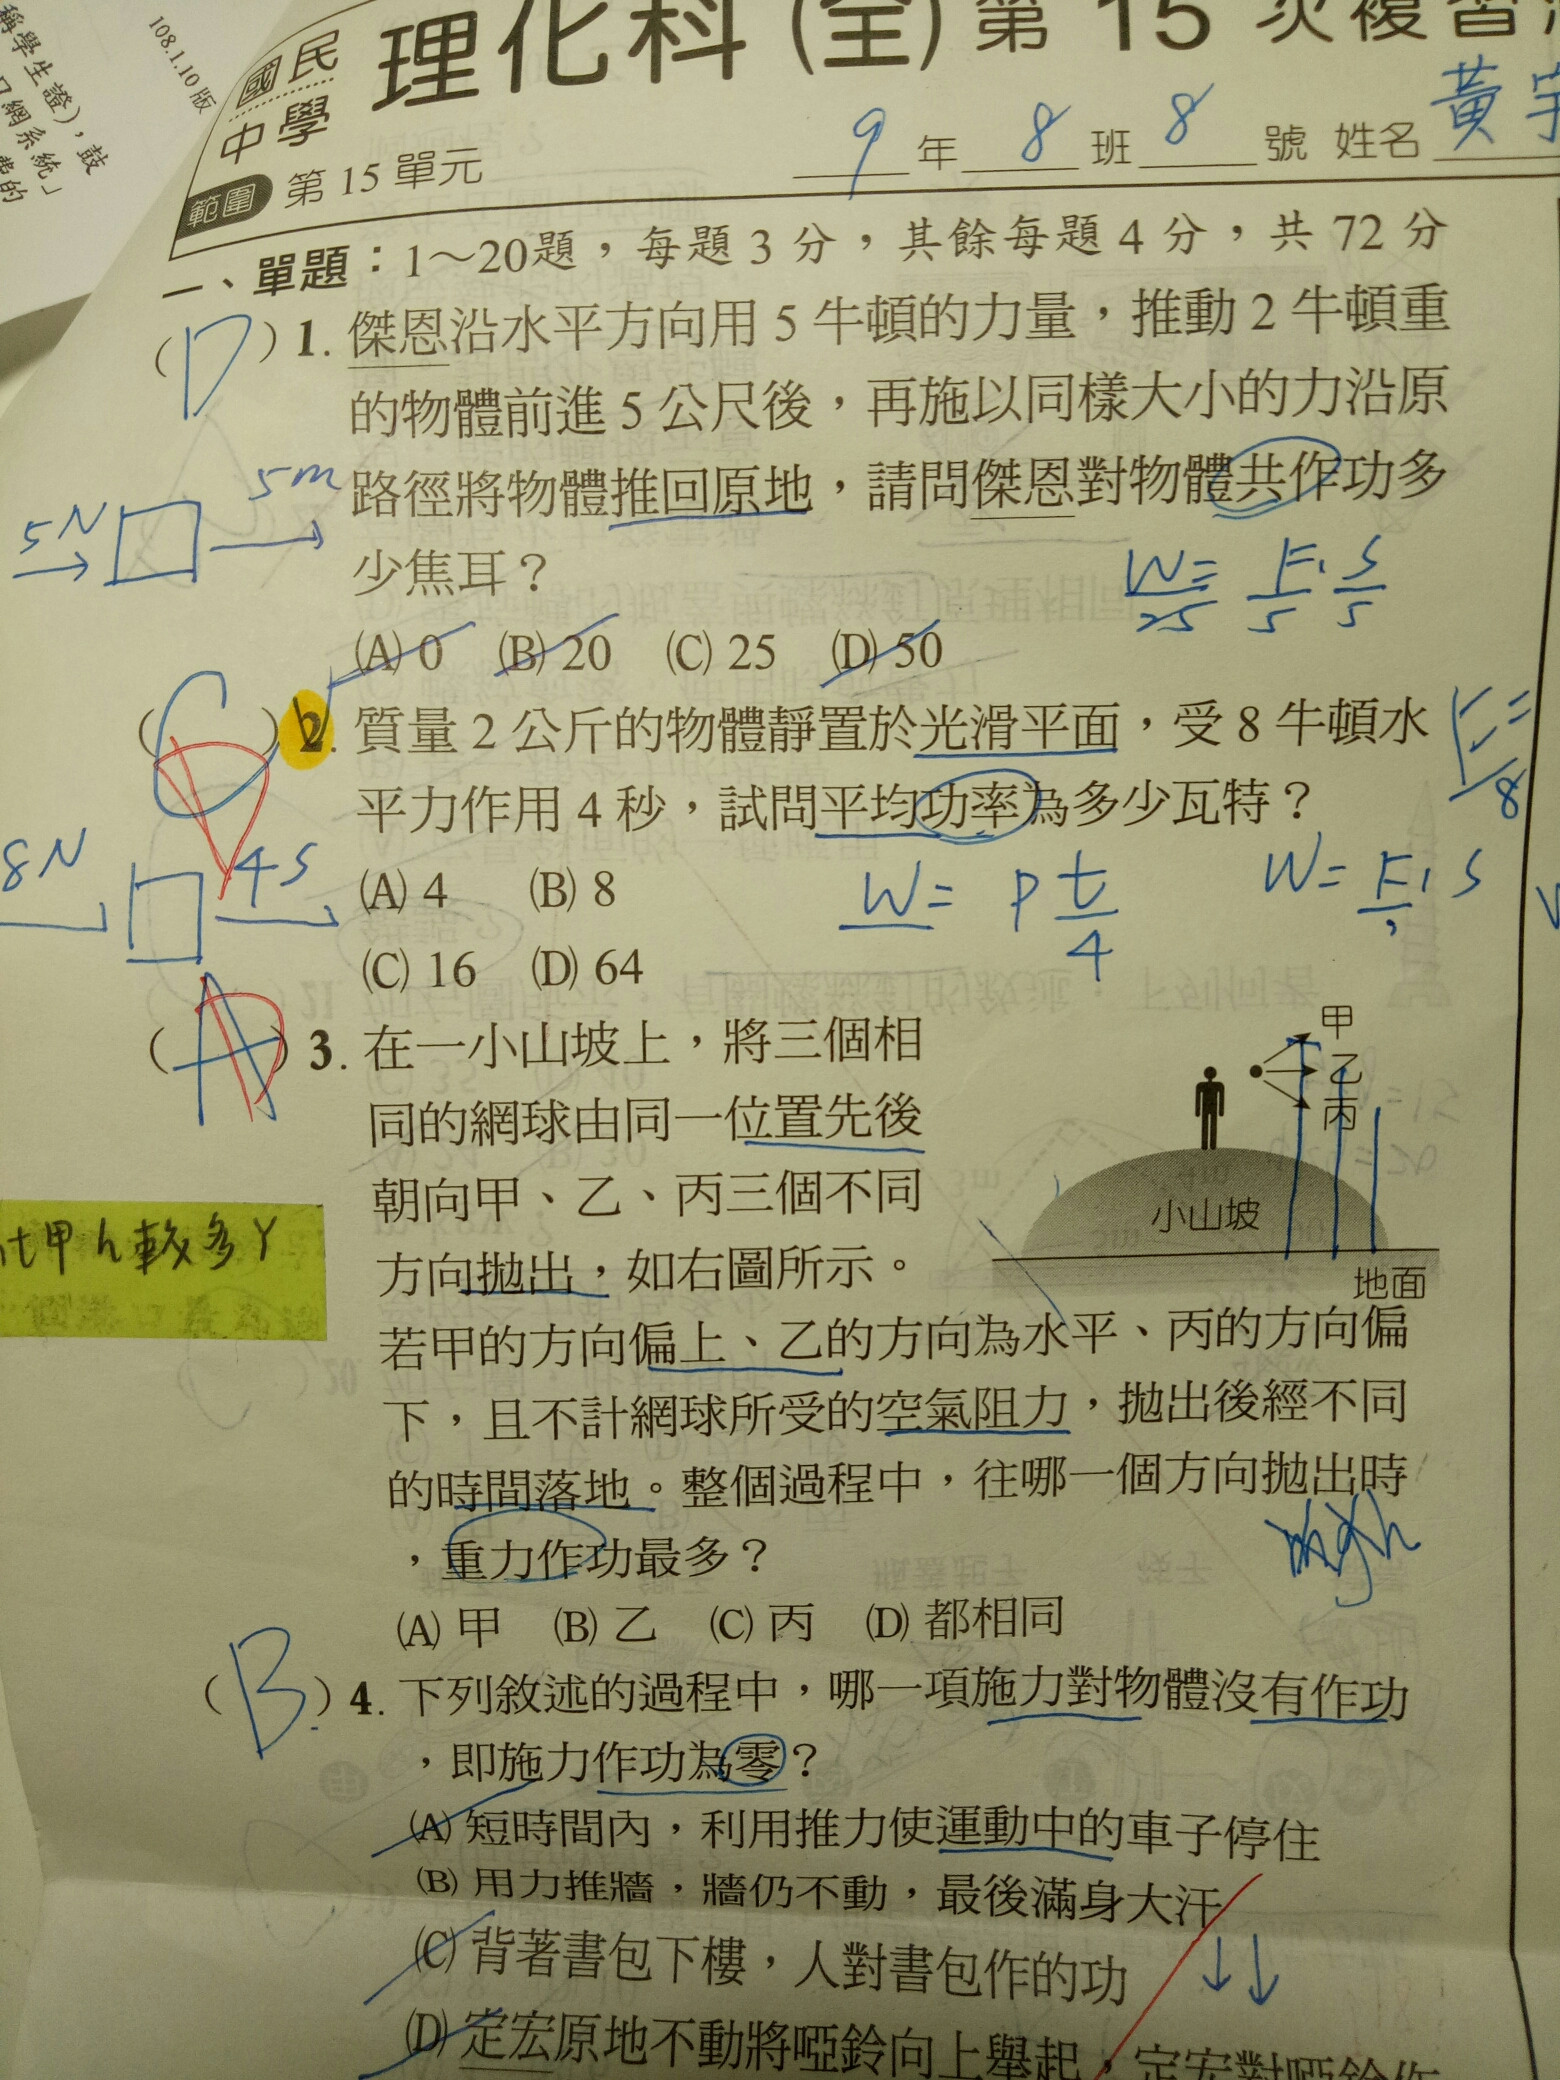 稱學生證），鼓
口網系統」
費的
108.1.10 版
國民
中學
理化科（全）第 15 次複習
9 年 8 班 8 號 姓名 黃宇
範圍 第 15 單元
一、單題：1～20題，每題 3 分，其餘每題 4 分，共 72 分
( D ) 1. 傑恩沿水平方向用 5 牛頓的力量，推動 2 牛頓重
的物體前進 5 公尺後，再施以同樣大小的力沿原
路徑將物體推回原地，請問傑恩對物體共作功多
少焦耳？
5N 5m
W= F. S
25 5 5
(A) 0 (B) 20 (C) 25 (D) 50
( C D ) 2. 質量 2 公斤的物體靜置於光滑平面，受 8 牛頓水
平力作用 4 秒，試問平均功率為多少瓦特？
F=
8
8N 4S
(A) 4 (B) 8
W= P t
4
W= F. S
(C) 16 (D) 64
( A D ) 3. 在一小山坡上，將三個相
同的網球由同一位置先後
朝向甲、乙、丙三個不同
方向拋出，如右圖所示。
甲
乙
丙
小山坡
地面
甲 h 較多
若甲的方向偏上、乙的方向為水平、丙的方向偏
下，且不計網球所受的空氣阻力，拋出後經不同
的時間落地。整個過程中，往哪一個方向拋出時
，重力作功最多？
mgh
(A) 甲 (B) 乙 (C) 丙 (D) 都相同
( B ) 4. 下列敘述的過程中，哪一項施力對物體沒有作功
，即施力作功為零？
(A) 短時間內，利用推力使運動中的車子停住
(B) 用力推牆，牆仍不動，最後滿身大汗
(C) 背著書包下樓，人對書包作的功
(D) 定宏原地不動將啞鈴向上舉起，定宏對啞鈴作